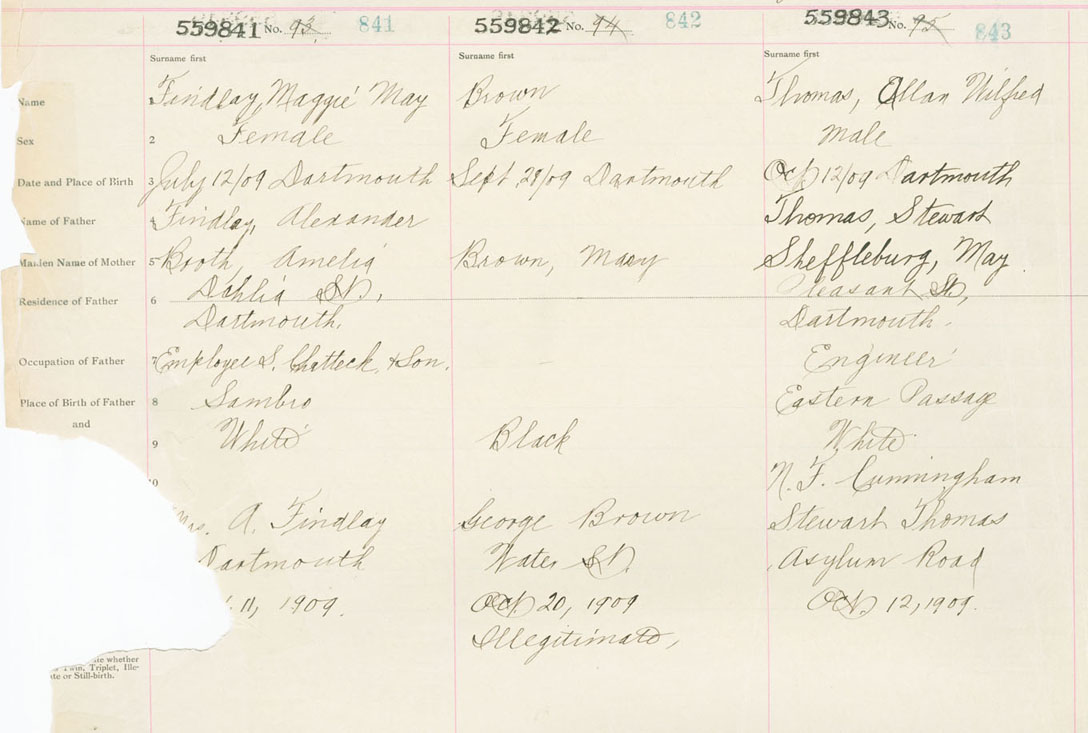 559841 No. 93 841
559842 No. 94 842
559843 No. 95 843
Surname first Surname first Surname first
Name 1 Findlay, Maggie May Brown Thomas, Allan Wilfred
Sex 2 Female Female Male
Date and Place of Birth 3 July 12/09 Dartmouth Sept 29/09 Dartmouth Oct 12/09 Dartmouth
Name of Father 4 Findlay, Alexander Thomas, Stewart
Maiden Name of Mother 5 Booth, Amelia Brown, Mary Sheffleburg, May
Residence of Father 6 Dahlia St, Pleasant St,
Dartmouth. Dartmouth.
Occupation of Father 7 Employee S. & Son. Engineer
Place of Birth of Father 8 Sambro Eastern Passage
and
9 White Black White
N. F. Cunningham
Mrs. A. Findlay George Brown Stewart Thomas
Dartmouth Water St. Asylum Road
11, 1909. Oct. 20, 1909 Oct 12, 1909.
Illegitimate,
whether
Twin, Triplet, Ille-
or Still-birth.